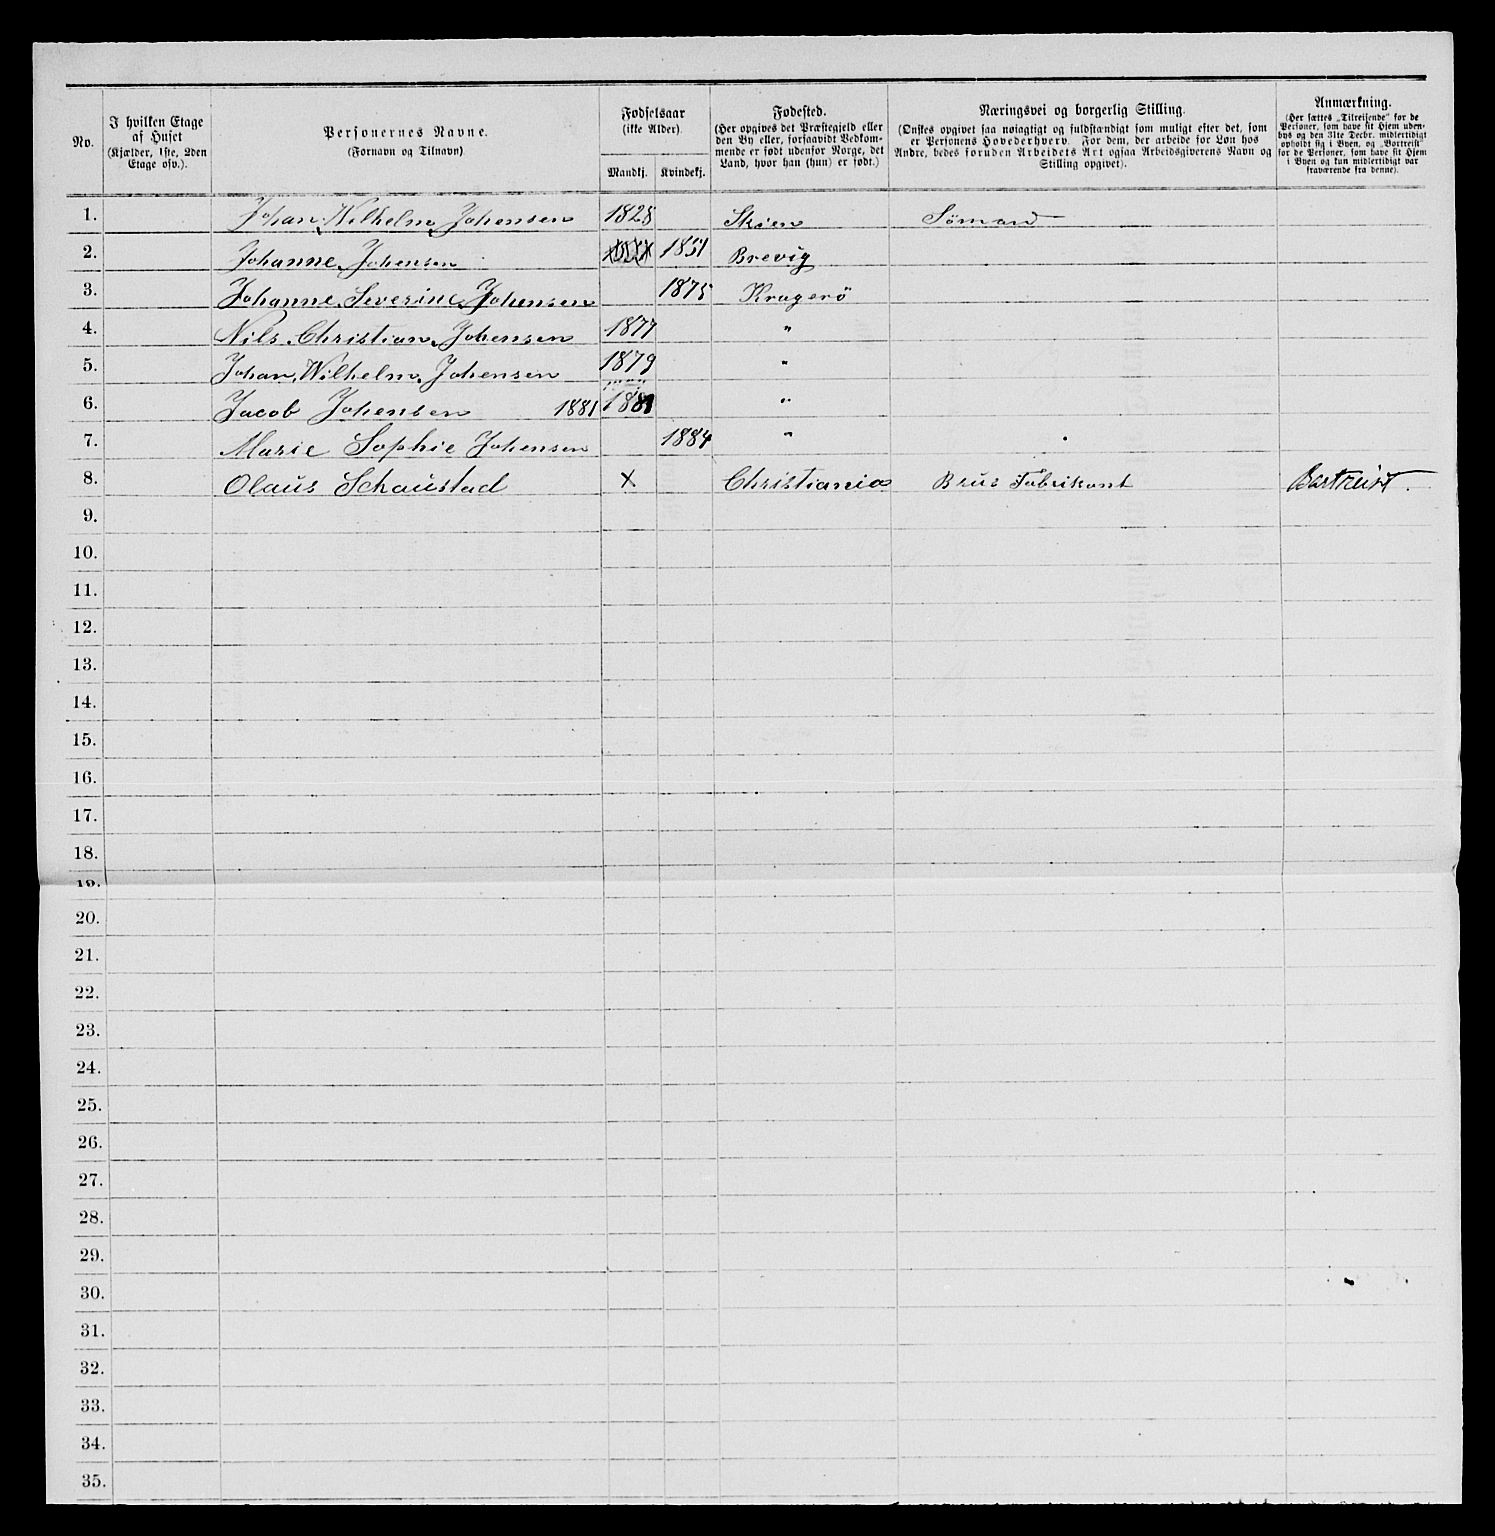 No.
I hvilken Etage af Huset (Kjælder, 1ste, 2den Etage osv.).
Personernes Navne. (Fornavn og Tilnavn)
Fødselsaar (ikke Alder).
Mandkj. Kvindekj.
Fødested. (Her opgives det Præstegjeld eller den By eller, forsaavidt Vedkommende er født udenfor Norge, det Land, hvor han (hun) er født.)
Næringsvei og borgerlig Stilling. (Ønskes opgivet saa nøiagtigt og fuldstændigt som muligt efter det, som er Personens Hovederhverv. For dem, der arbeide for Løn hos Andre, bedes foruden Arbeidets Art ogsaa Arbeidsgiverens Navn og Stilling opgivet).
Anmærkning. (Her sættes „Tilreisende“ for de Personer, som have sit Hjem udenbys og den 31te Decbr. midlertidigt opholdt sig i Byen, og „Bortreist“ for de Personer, som have sit Hjem i Byen og kun midlertidigt var fraværende fra denne).
1. Johan Wilhelm Johensen 1828 Skien Sömand
2. Johanne Johensen 1851 Brevig
3. Johanne Severine Johensen 1875 Kragerö
4. Nils Christian Johensen 1877 "
5. Johan Wilhelm Johensen 1879 "
6. Jacob Johensen 1881 1881 "
7. Marie Sophie Johensen 1884 "
8. Olaus Schaustad x Christiania Brus Fabrikant Bortreist.
9.
10.
11.
12.
13.
14.
15.
16.
17.
18.
19.
20.
21.
22.
23.
24.
25.
26.
27.
28.
29.
30.
31.
32.
33.
34.
35.